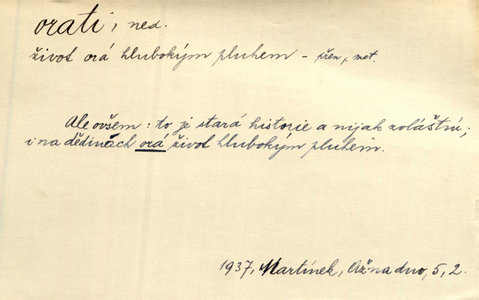 orati, ned.
život orá hlubokým pluhem – přen., met.
Ale ovšem: to je stará historie a nijak zvláštní;
i na dědinách orá život hlubokým pluhem.
1937, Martínek, Až na dno, 5, 2.